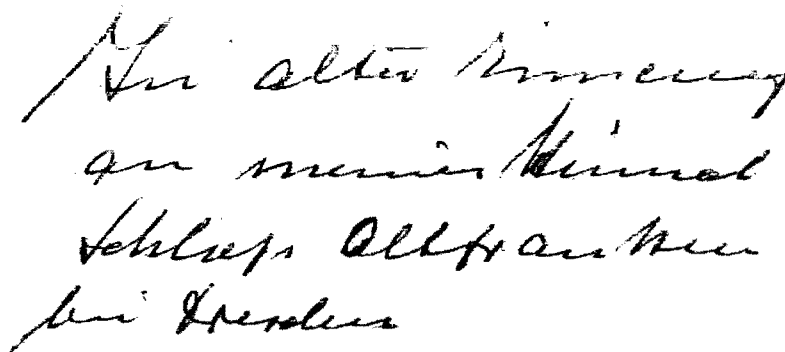 In alter Erinnerung
an meine Heimat
Schloß Altfranken
bei Dresden